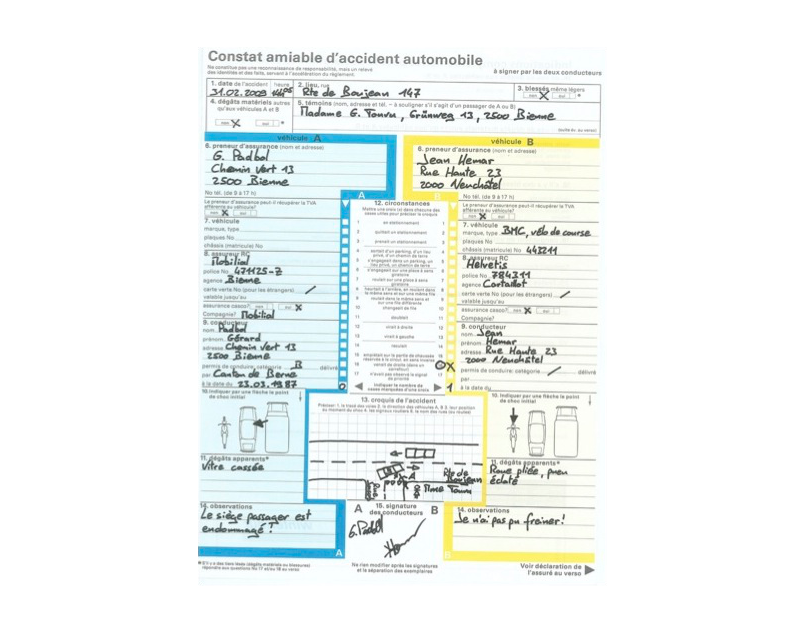 Constat amiable d'accident automobile
Ne constitue pas une reconnaissance de responsabilité, mais un relevé
des identités et des faits, servant à l'accélération du règlement.
à signer par les deux conducteurs
1. date de l'accident heure
31.02.2009
2. lieu, rue
Rte de Boujean 147
3. blessés même légers
non oui *
4. dégâts matériels autres
qu'aux véhicules A et B
non oui *
5. témoins (nom, adresse et tél. – à souligner s'il s'agit d'un passager de A ou B)
Madame G. Tonvu, Grünweg 13, 2500 Bienne
(suite év. au verso)
véhicule A
6. preneur d'assurance (nom et adresse)
G. Padbol
Chemin Vert 13
2500 Bienne
No tél. (de 9 à 17 h)
Le preneur d'assurance peut-il récupérer la TVA
afférente au véhicule?
non oui
7. véhicule
marque, type
plaques No
châssis (matricule) No
8. assureur RC
Mobilial
police No 471125-Z
agence Bienne
carte verte No (pour les étrangers)
valable jusqu'au
assurance casco? non oui
Compagnie? Mobilial
9. conducteur
nom Padbol
prénom Gérard
adresse Chemin Vert 13
2500 Bienne
permis de conduire: catégorie B délivré
par Canton de Berne
à la date du 23.03.1987
10. Indiquer par une flèche le point
de choc initial
11. dégâts apparents*
Vitre cassée
14. observations
Le siège passager est
endommagé!
A
12. circonstances
Mettre une croix (x) dans chacune des
cases utiles pour préciser le croquis
1 en stationnement 1
2 quittait un stationnement 2
3 prenait un stationnement 3
4 sortait d'un parking, d'un lieu
privé, d'un chemin de terre 4
5 s'engageait dans un parking, un
lieu privé, un chemin de terre 5
6 s'engageait sur une place à sens
giratoire 6
7 roulait sur une place à sens
giratoire 7
8 heurtait à l'arrière, en roulant dans
le même sens et sur une même file 8
9 roulait dans le même sens et
sur une file différente 9
10 changeait de file 10
11 doublait 11
12 virait à droite 12
13 virait à gauche 13
14 reculait 14
15 empiétait sur la partie de chaussée
réservée à la circul. en sens inverse 15
16 venait de droite (dans un
carrefour) 16
17 n'avait pas observé le signal
de priorité 17
0 indiquer le nombre de
cases marquées d'une croix 1
13. croquis de l'accident
Préciser: 1. le tracé des voies 2. la direction des véhicules A, B 3. leur position
au moment du choc 4. les signaux routiers 5. le nom des rues (ou routes)
Rte de
Boujean
A
15. signature
des conducteurs
A B
G. Padbol
véhicule B
6. preneur d'assurance (nom et adresse)
Jean Hemar
Rue Haute 23
2000 Neuchâtel
No tél. (de 9 à 17 h)
Le preneur d'assurance peut-il récupérer la TVA
afférente au véhicule?
non oui
7. véhicule
marque, type BMC, vélo de course
plaques No
châssis (matricule) No 443211
8. assureur RC
Helvetis
police No 784311
agence Cortaillot
carte verte No (pour les étrangers)
valable jusqu'au
assurance casco? non oui
Compagnie?
9. conducteur
nom Jean
prénom Hemar
adresse Rue Haute 23
2000 Neuchâtel
permis de conduire: catégorie délivré
par
à la date du
10. Indiquer par une flèche le point
de choc initial
11. dégâts apparents*
Roue pliée, pneu
éclaté
14. observations
Je n'ai pas pu freiner!
B
Ne rien modifier après les signatures
et la séparation des exemplaires
Voir déclaration de
l'assuré au verso